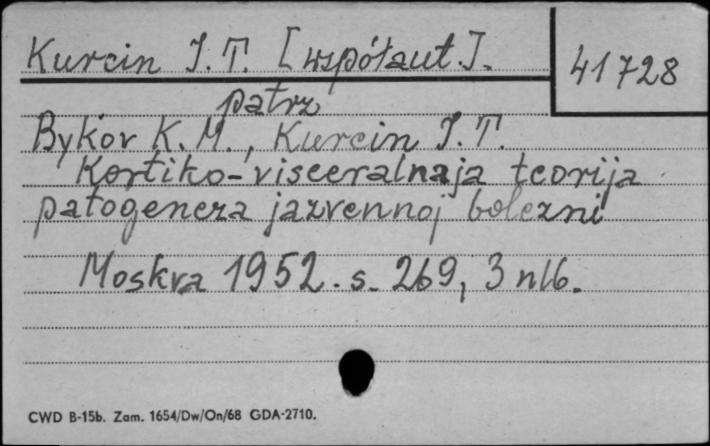 Kurcin I. T. [współaut.].
41728
patrz
Bykov K. M., Kurcin I. T.
Kortiko-visceralnaja teorija
patogeneza jazvennoj bolezni
Moskva 1952. s. 269, 3 nlb.
CWD B-15b. Zam. 1654/Dw/On/68 GDA-2710.